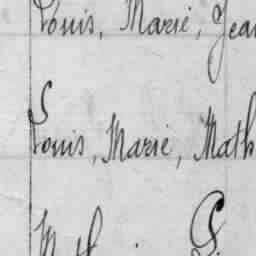 Louis, Marie, Jean
Louis, Marie, Math